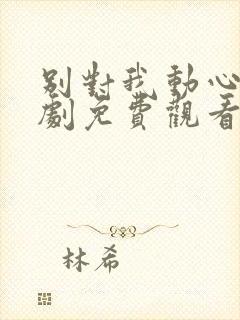 別對我動心
劇免費觀看
林希